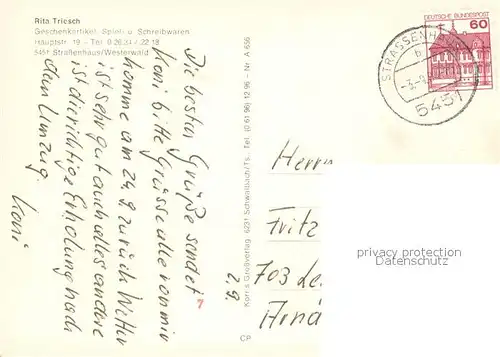 Rita Triesch
Geschenkartikel, Spiel- u. Schreibwaren
Hauptstr. 19 - Tel. 0 26 34 / 22 18
5451 Straßenhaus/Westerwald
Die besten Grüße sendet
Koni bitte Grüsse alle von mir
komme am 24. 9. zurück Wetter
ist sehr gut auch alles andere
ist die richtige Erholung nach
dem Umzug.
Koni
2.9.
7
Korr's Großverlag, 6231 Schwalbach/Ts., Tel. (0 61 96) 12 96 - Nr. A 656
CP
DEUTSCHE BUNDESPOST
60
STRASSENHAUS
b
5451
Herrn
Fritz
703
privacy protection
Datenschutz